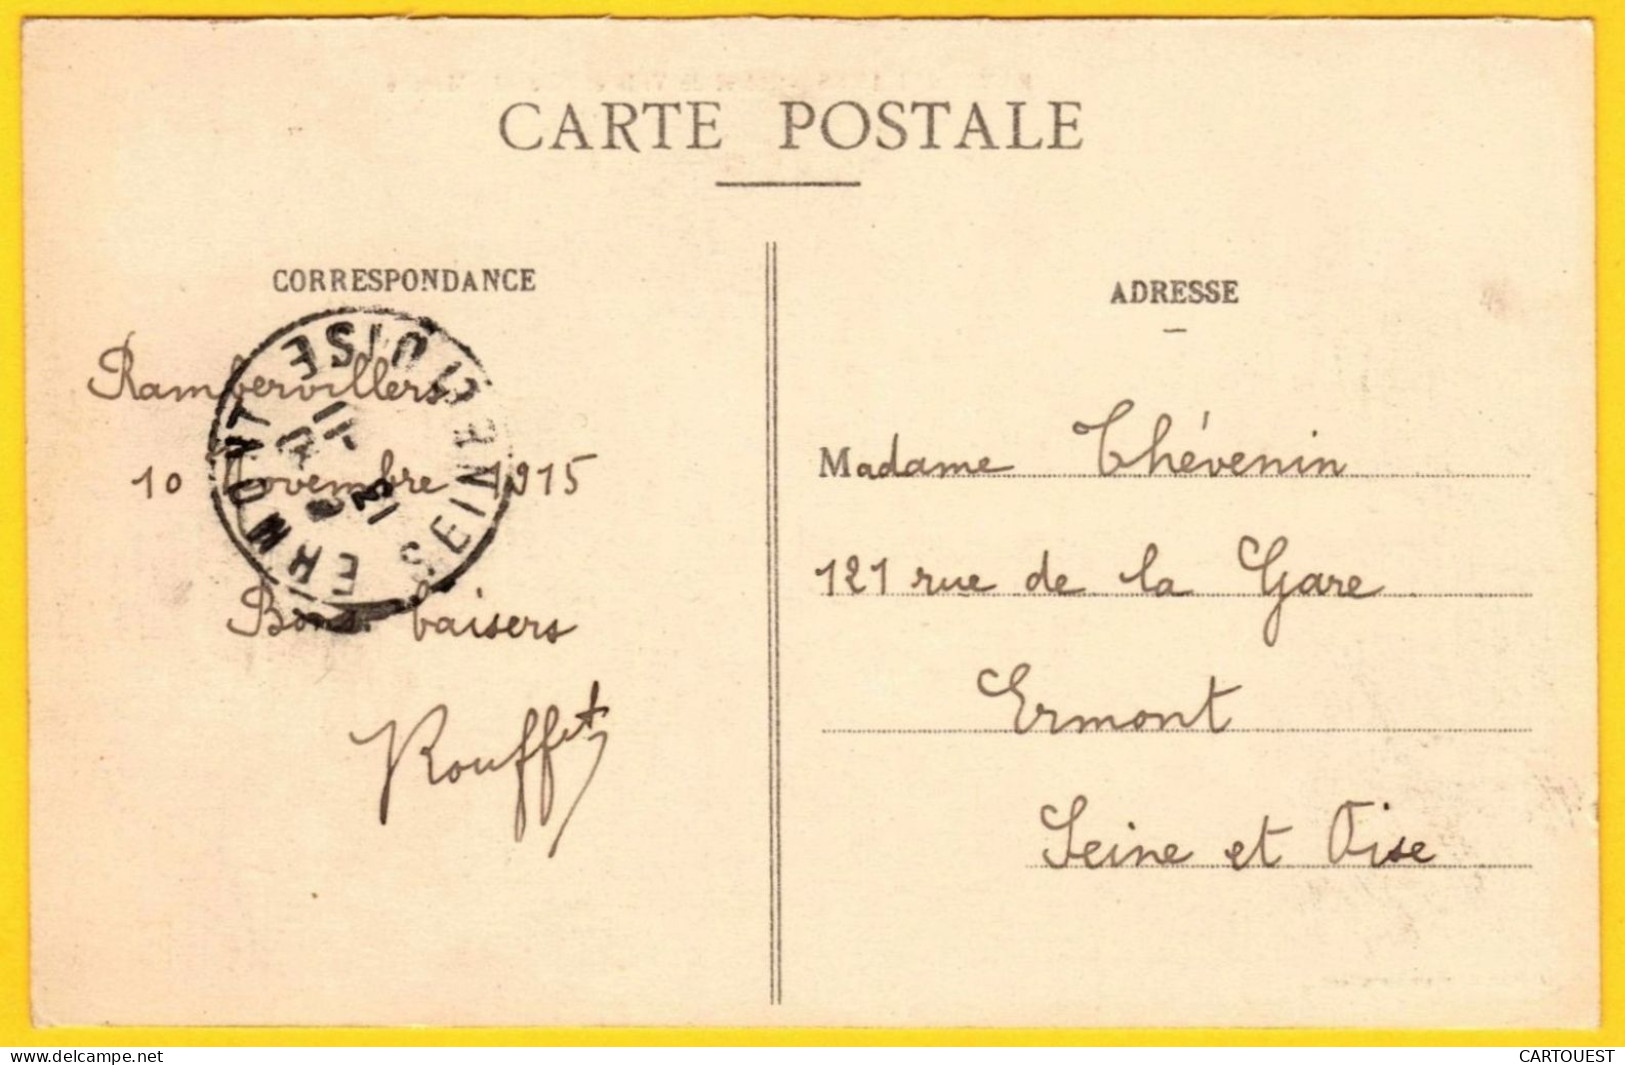 CARTE POSTALE
CORRESPONDANCE
Rambervillers
10 Novembre 1915
Bons baisers
Rouffet
ERMONT
SEINE ET OISE
ADRESSE
Madame Thévenin
121 rue de la Gare
Ermont
Seine et Oise
delcampe.net
CARTOUEST